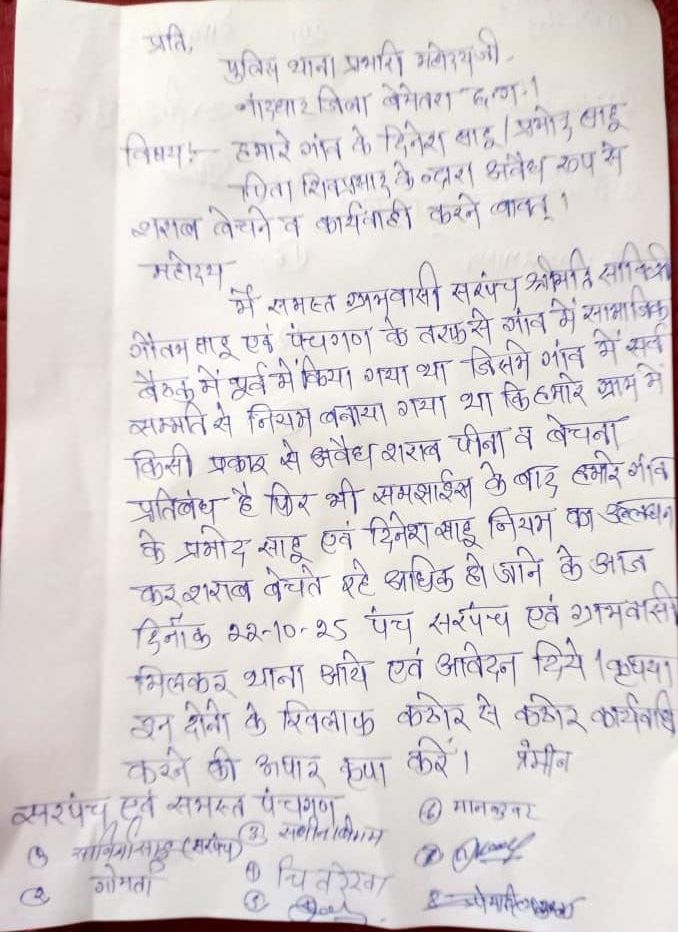 प्रति,
पुलिस थाना प्रभारी महोदयजी,
नांदघाट जिला बेमेतरा छ.ग.।
विषय:- हमारे गांव के दिनेश साहू / प्रमोद साहू
पिता शिवप्रसाद के द्वारा अवैध रूप से
शराब बेचने व कार्यवाही करने बाबत्।
महोदय
मैं समस्त ग्रामवासी सरपंच श्रीमति सावित्री
गौतम साहू एवं पंचगण के तरफ से गांव में सामाजिक
बैठक में पूर्व में किया गया था जिसमे गांव में सर्व
सम्मति से नियम बनाया गया था कि हमारे ग्राम में
किसी प्रकार से अवैध शराब पीना व बेचना
प्रतिबंध है फिर भी समझाईस के बाद हमारे गांव
के प्रमोद साहू एवं दिनेश साहू नियम का उल्लंघन
कर शराब बेचते रहे अधिक हो जाने के आज
दिनाँक 22-10-25 पंच सरपंच एवं ग्रामवासी
मिलकर थाना आये एवं आवेदन दिये। कृपया
इन दोनो के खिलाफ कठोर से कठोर कार्यवाही
करने की अपार कृपा करें।
सरपंच एवं समस्त पंचगण
① सावित्री साहू (सरपंच)
② गोमती
③
④ चित्ररेखा
⑤
⑥ मानकुवर
⑦
8